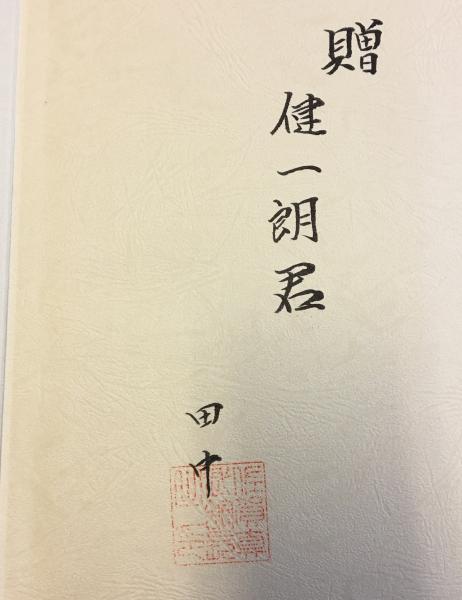 贈
健一朗君
田中